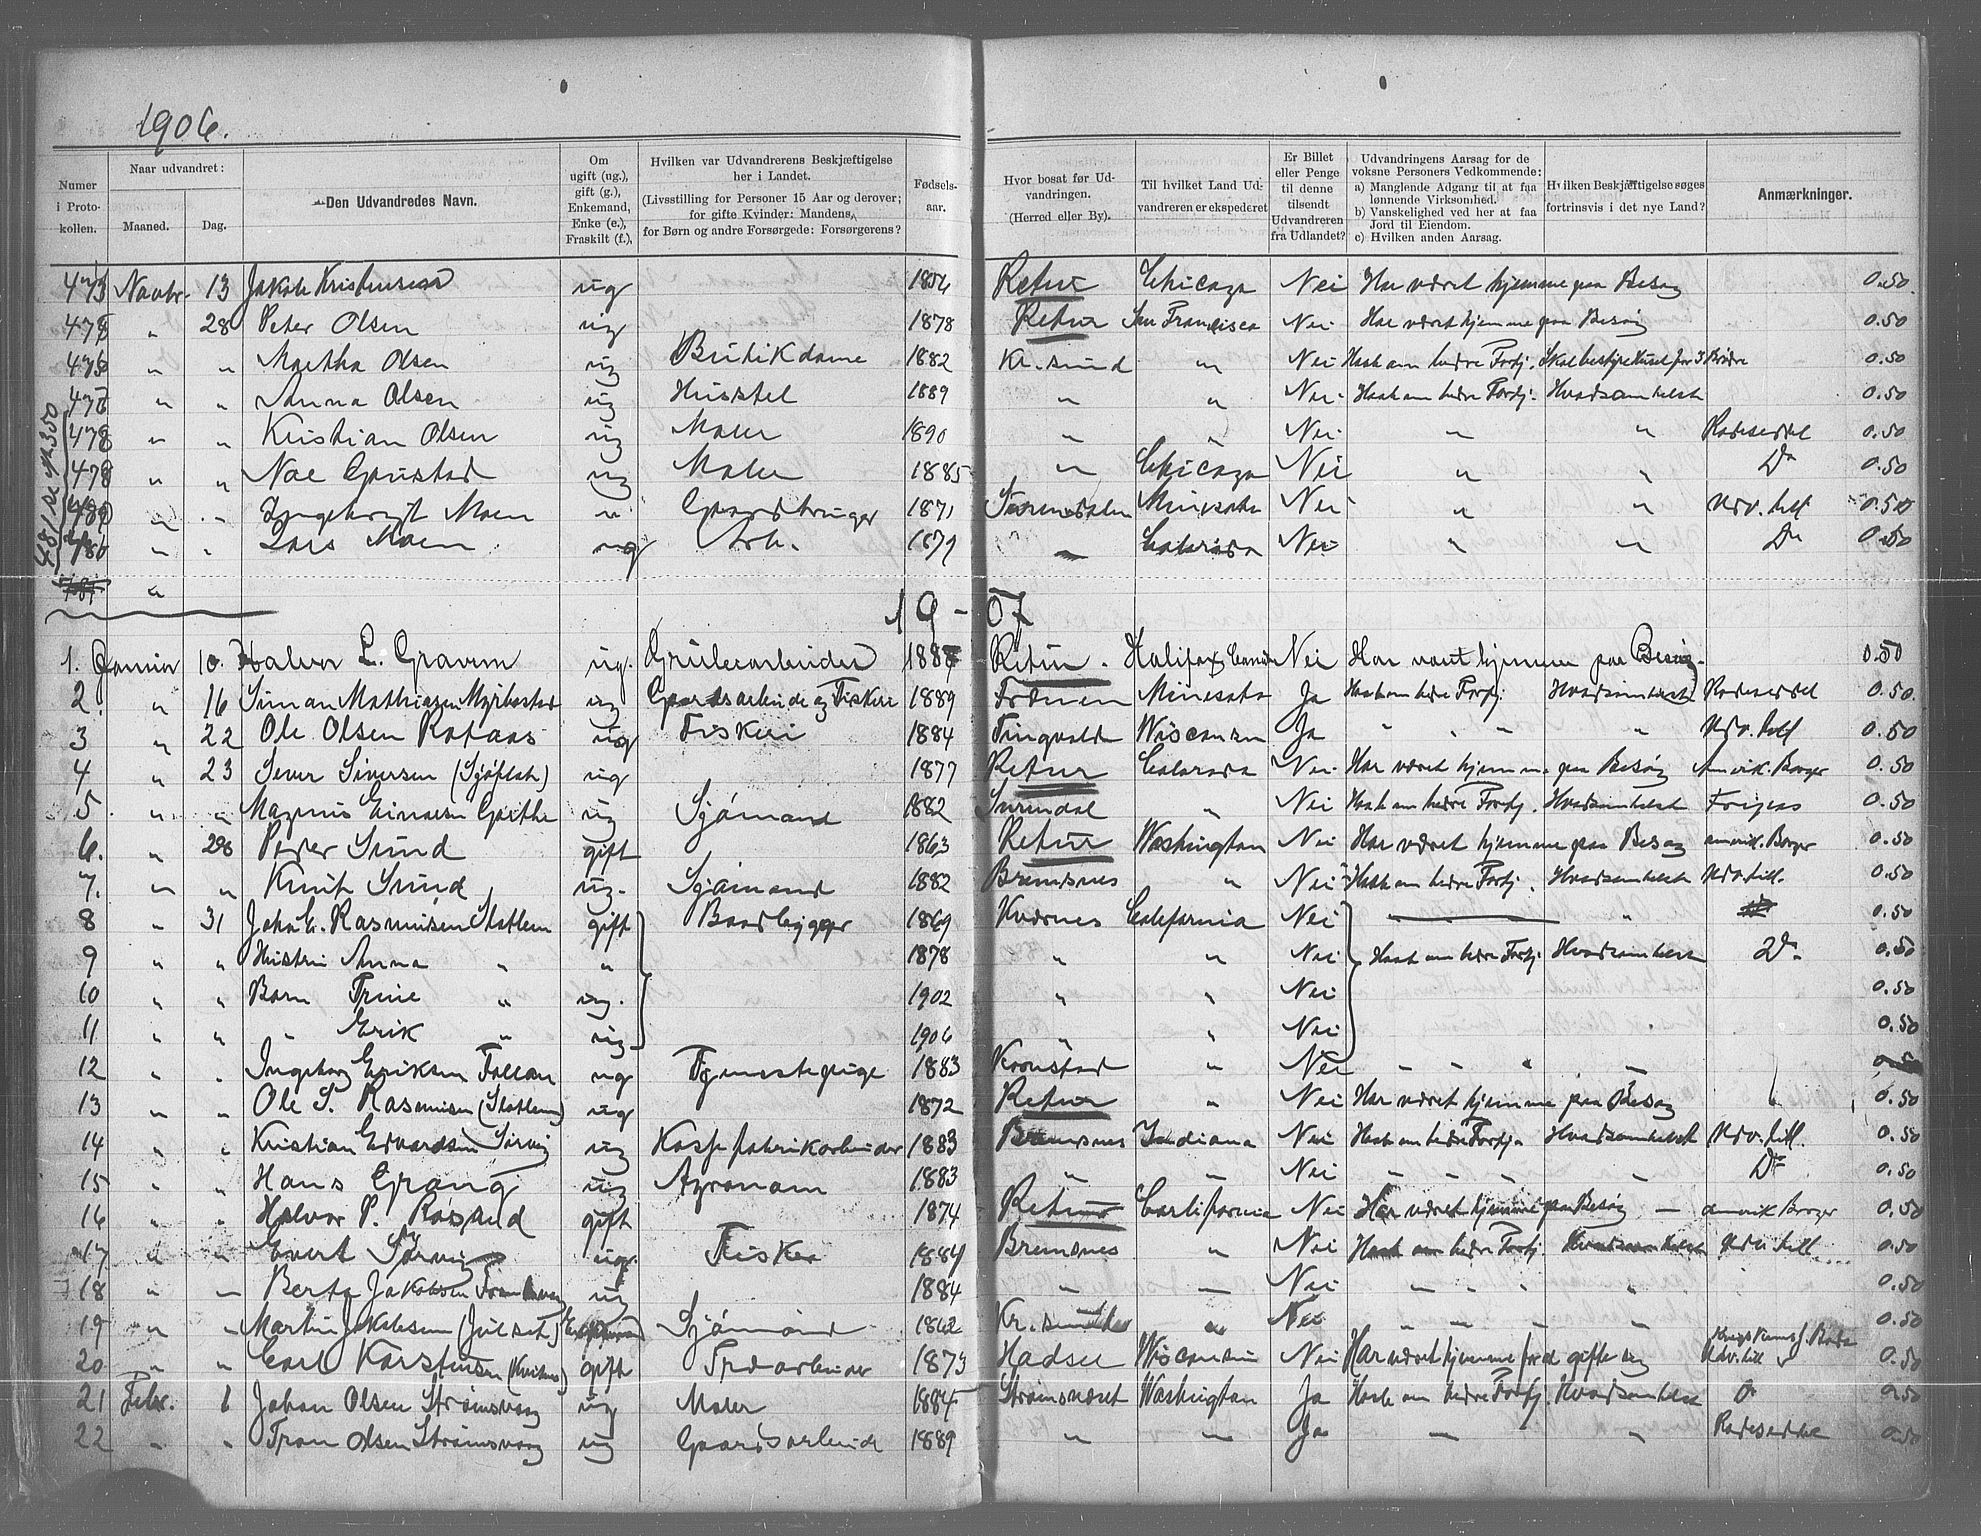 1906.
Numer i Protokollen. | Naar udvandret: Maaned. Dag. | Den Udvandredes Navn. | Om ugift (ug.), gift (g.), Enkemand, Enke (e.), Fraskilt (f.), | Hvilken var Udvandrerens Beskjæftigelse her i Landet. (Livsstilling for Personer 15 Aar og derover; for gifte Kvinder: Mandens, for Børn og andre Forsørgede: Forsørgerens? | Fødselsaar. | Hvor bosat før Udvandringen. (Herred eller By). | Til hvilket Land Udvandreren er ekspederet | Er Billet eller Penge til denne tilsendt Udvandreren fra Udlandet? | Udvandringens Aarsag for de voksne Personers Vedkommende: a) Manglende Adgang til at faa lønnende Virksomhed. b) Vanskelighed ved her at faa Jord til Eiendom. c) Hvilken anden Aarsag. | Hvilken Beskjæftigelse søges fortrinsvis i det nye Land? | Anmærkninger.
Novbr. 13 Jakob Kristensen ug 1854 Retur Chicago Nei Har været hjemme paa Besøg 0.50
" 28 Peter Olsen ug 1878 Retur San Francisco Nei Har været hjemme paa Besøg 0.50
" " Martha Olsen ug Butikdame 1882 Kr.sund " Nei Haab om bedre Fortj. Skal bestyre Huset for 3 Brødre 0.50
" " Anna Olsen ug Husstel 1889 " " Nei Haab om bedre Fortj. Hvadsomhelst 0.50
478 " " Kristian Olsen ug Maler 1890 " " Nei " " Radeseddel 0.50
" " ug Maler 1885 " Chicago Nei " " Do 0.50
" " Ingeborgt Moen " Gaardbruger 1871 Surendalen Minesota Nei " " Udv. till 0.50
" " Lars Moen ug Arb. 1879 " Colorado Nei " " Do 0.50
"
19-07
1. Januar 10. Halvor L. Gravem ug. Grubearbeider 188 Retur. Halifax, Canada Nei Har været hjemme paa Besøg. 0.50
2. " 16 Simon Mathiasen Myrbostad ug Gaardsarbeide og Fiskeri 1889 Frænen Minesota Ja Haab om bedre Fortj. Hvadsomhelst Radeseddel 0.50.
3 " 22 Ole Olsen ug Fiskeri 1884 Tingvold Wisconsin Ja " " " " Udv. till 0.50
4 " 23 Sever Siversen ug 1877 Retur Colorado Nei. Har været hjemme paa Besøg Amrik. Borger 0.50
5 " " Magnus Einarsen ug Sjömand 1882 Surendal " Nei Haab om bedre Fortj. Hvadsomhelst 0.50
6. " Peder Sund gift 1863 Retur Washington Nei Har været hjemme paa Besøg amrik. Borger 0.50
7. " " Knut Sund ug. Sjömand 1882 Bremsnes " Nei Haab om bedre Fortj. Hvadsomhelst Udv. till. 0.50
8 " 31 John E. Rasmusen Statlem gift Baadbygger 1869 Kvernes California Nei " 0.50
9 " " Hustru Anna " " 1878 " " Nei Haab om bedre Fortj. Hvadsomhelst Do 0.50
10 " " Barn Trine " ug. 1902 " " Nei 0.50
11 " " " Erik " ug 1906 " " Nei 0.50
12 " " Ingeborg Eriksen ug Tjenestepige 1883 Kornstad " Nei " " " "
13 " " Ole S. Rasmusen (Statlem) ug 1872 Retur " Nei Har været hjemme paa Besøg 0.50
14 " " Kristian Edvardsen Sørvig ug Kassefabrikarbeider 1883 Bremsnes Indiana Nei Haab om bedre Fortj. Hvadsomhelst Udv. till. 0.50
15 " " Hans Grang ug Agronom 1883 " " Nei " " " " Do 0.50
16 " " Halvor P. Røsand gift 1874 Retur California Nei Har været hjemme paa Besøg — amrik Borger 0.50
17 " " Evert Sørvig ug. Fisker 1884 Bremsnes " Nei Haab om bedre Fortj. Hvadsomhelst Udv. till. 0.50
18 " " Berta Jakobsen ug 1884 " " Nei " " " " 0.50
19 " " Martin Jakobsen (Julset) Sjömand 1862 Kr.sund " Nei " " " " 0.50
20 " " Carl Karstensen gift Træarbeider 1873 Hadsel Wisconsin Nei Har været hjemme for at gifte sig Udv. till 0.50
21 Febr. 1 Johan Olsen Strømsvaag ug Maler 1884 Strømsneset Washington Ja Haab om bedre Fortj. Hvadsomhelst 0.50
22 " " Tron Olsen Strømsvaag ug Gaardsarbeide 1889 " " Ja " " Radeseddel 0.50